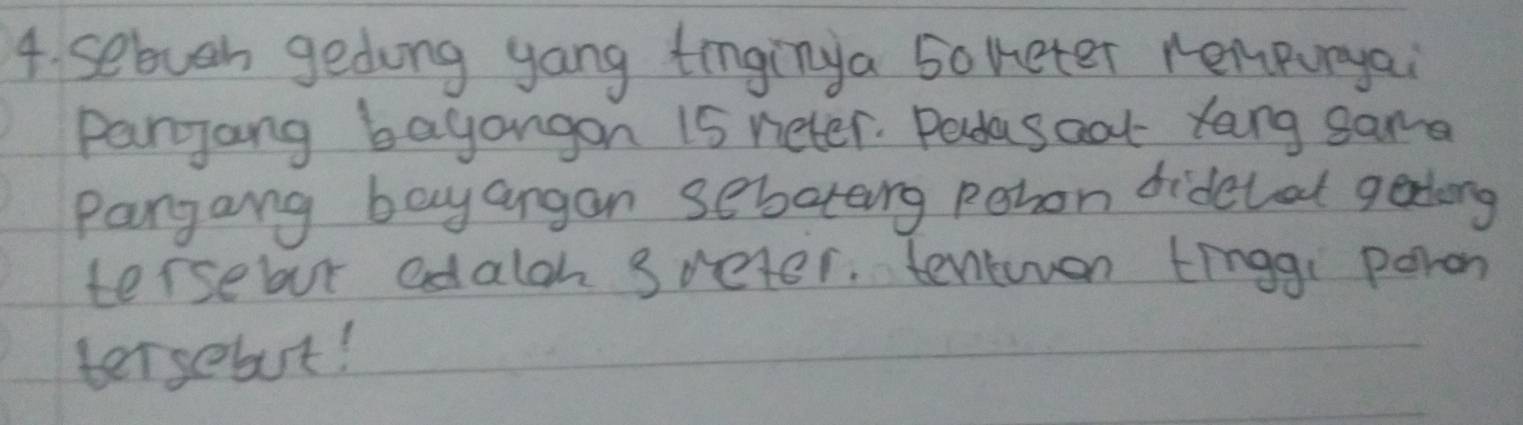 4. Sebuah gedung yang tingginya 50 meter mempunyai
Panjang bayangan 15 meter. Pada saat yang sama
Panjang bayangan sebatang pohon didekat gedung
tersebut adalah 3 meter. tentukan tinggi pohon
tersebut!